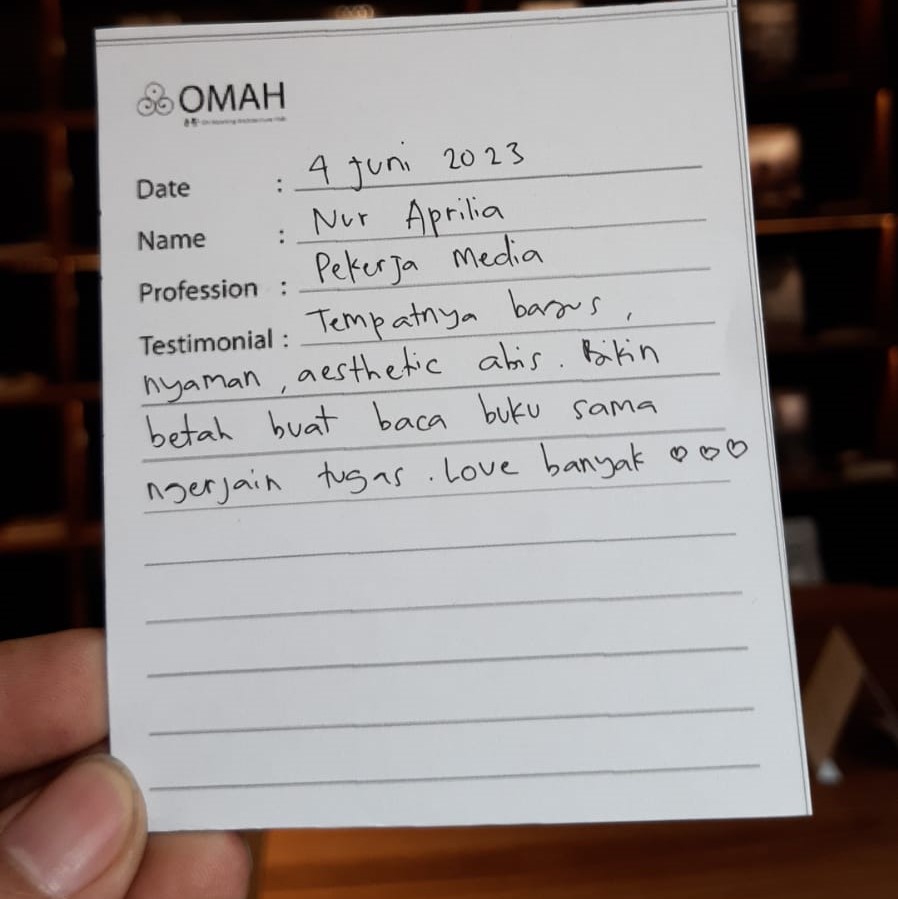 OMAH
Date : 4 Juni 2023
Name : Nur Aprilia
Profession : Pekerja Media
Testimonial : Tempatnya bagus,
nyaman, aesthetic abis. Bikin
betah buat baca buku sama
ngerjain tugas. Love banyak ♡♡♡